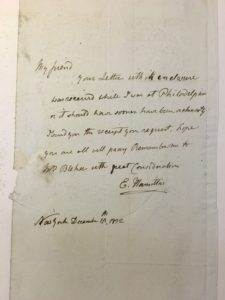 My friend
Your Letter with enclosure
was received while I was at Philadelphia
or it should have sooner have been
I send you the receipt you request, hope
you are all well pray Remember me to
Mrs with great Consideration
E. Hamilton
New York December